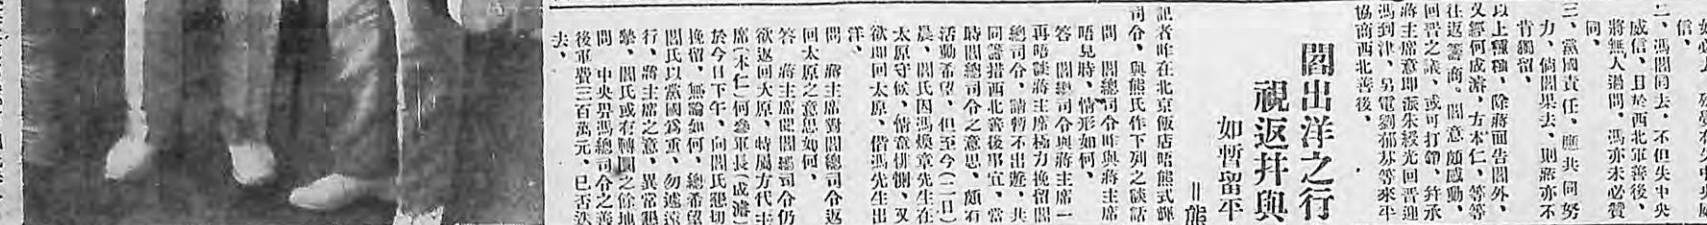 信、
二、馮閻同去、不但失中央
威信、且於西北軍善後、
將無人過問、馮亦未必贊
同、
三、黨國責任、應共同努
力、倘閻果去、則蔣亦不
肯獨留、
以上種種、除蔣面告閻外、
又經何成濬、方本仁、等等
往返籌商、閻意頗感動、
回晉之議、或可打銷、并承
蔣主席意即派朱綬光回晋迎
馮到津、另電劉郁芬等來平
協商西北善後、
閻出洋之行
視返幷與
如暫留平
＝熊
記者昨在北京飯店晤熊式輝
司令、與熊氏作下列之談話
問　閻總司令昨與蔣主席
晤見時、情形如何、
答　閻總司令與蔣主席一
再晤談蔣主席極力挽留閻
總司令、請暫不出遊、共
同籌措西北善後事宜、當
時閻總司令之意思、頗有
活動希望、但至今(二日)
晨、閻氏因馮煥章先生在
太原守候、情意悱惻、又
欲即回太原、偕馮先生出
洋、
問　蔣主席對閻總司令返
回太原之意思如何、
答　蔣主席聞閻總司令仍
欲返回太原、特屬方代主
席(本仁)何參軍長(成濬)
於今日下午、向閻氏懇切
挽留、無論如何、總希望
閻氏以黨國爲重、勿遽遠
行、蔣主席之意、異常懇
摯、閻氏或有轉圜之餘地
問　中央畀馮總司令之善
後軍費三百萬元、已否送
去、